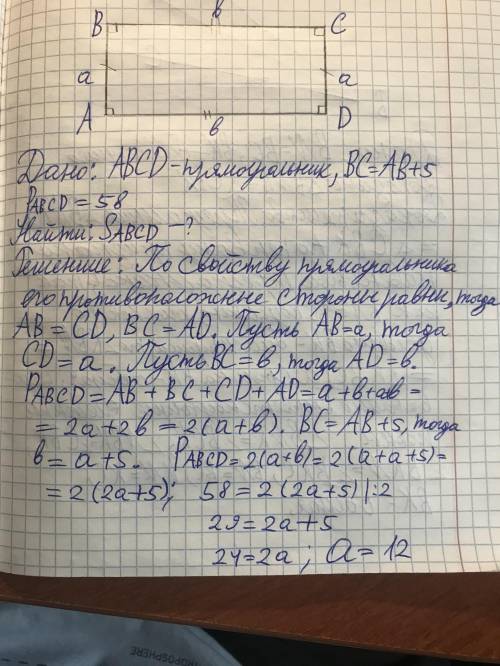 в
B C
a a
A в D
Дано: ABCD - прямоугольник, BC=AB+5
PABCD = 58
Найти: SABCD - ?
Решение: По свойству прямоугольника
его противоположные стороны равны, тогда
AB = CD, BC = AD. Пусть AB=a, тогда
CD = a. Пусть BC = в, тогда AD = в.
PABCD = AB + BC + CD + AD = a+в+aв =
= 2a+2в = 2(a+в). BC = AB+5, тогда
в = a+5. PABCD = 2(a+в) = 2(a+a+5) =
= 2(2a+5); 58 = 2(2a+5) |:2
29 = 2a+5
24 = 2a ; a = 12
TROPOSPHERE